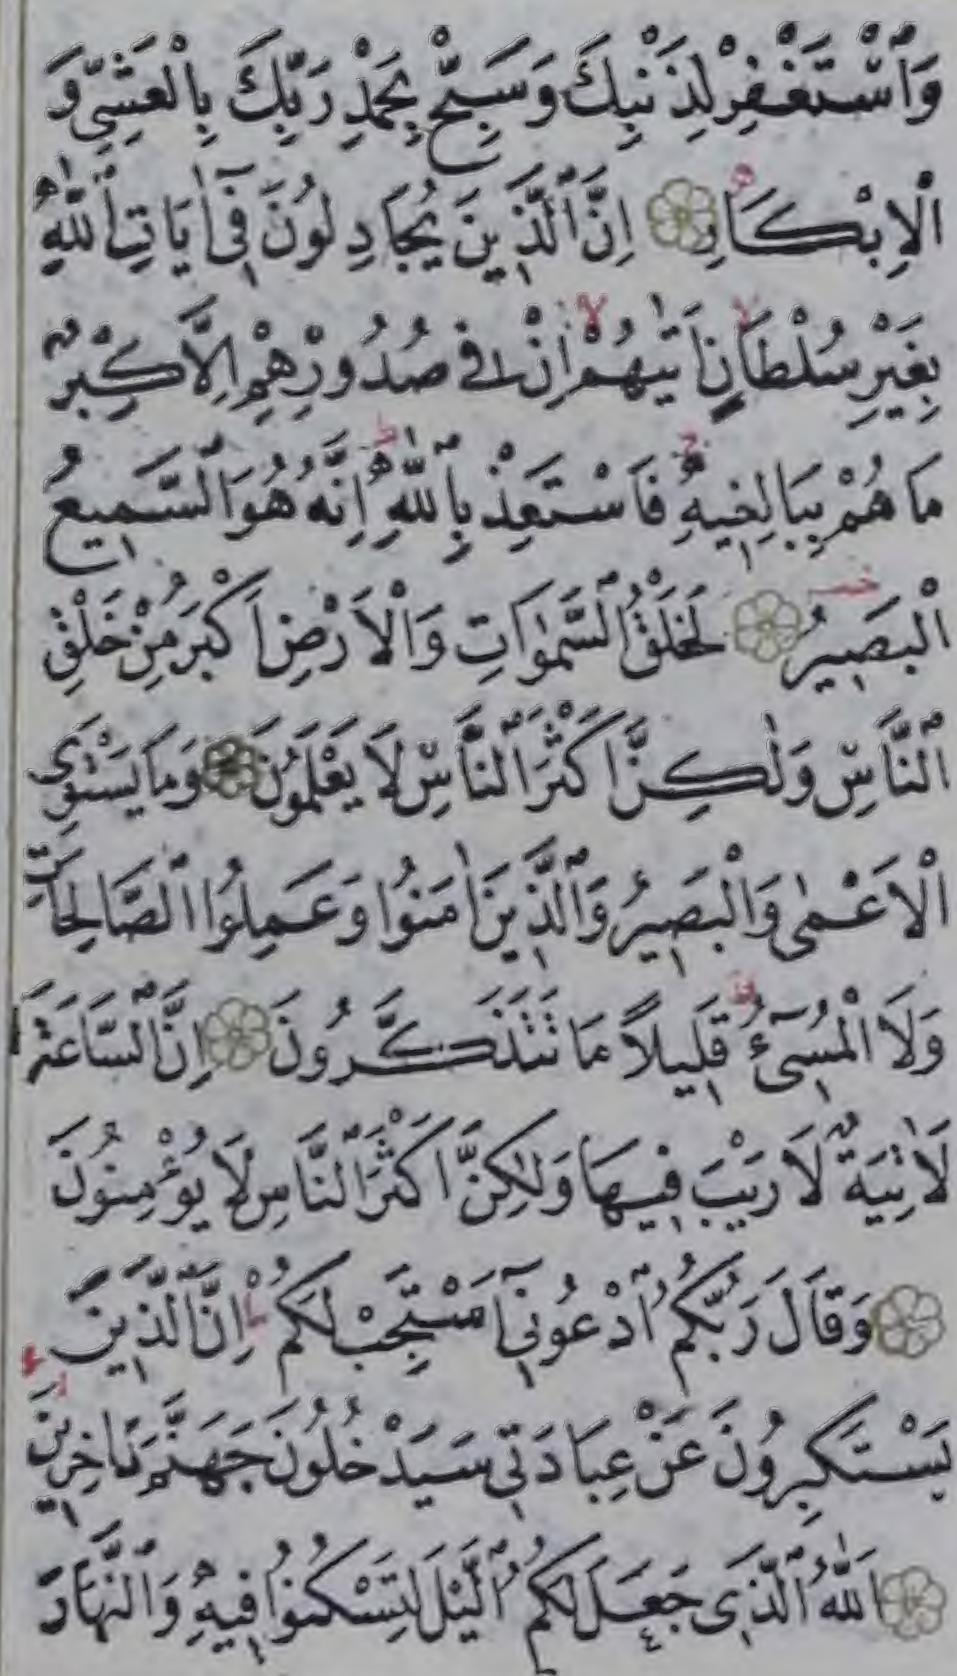 وَٱسْتَغْفِرْ لِذَنْبِكَ وَسَبِّحْ بِحَمْدِ رَبِّكَ بِالْعَشِيِّ وَ
الْاِبْكَارِ اِنَّ ٱلَّذِينَ يُجَادِلُونَ فِٓى اٰيَاتِ ٱللّٰهِ
بِغَيْرِ سُلْطَانٍ اَتٰيهُمْ اِنْ فِى صُدُورِهِمْ اِلَّا كِبْرٌ
مَا هُمْ بِبَالِغِيهِ فَاسْتَعِذْ بِٱللّٰهِ اِنَّهُ هُوَ ٱلسَّمِيعُ
الْبَصِيرُ لَخَلْقُ ٱلسَّمٰوَاتِ وَالْاَرْضِ اَكْبَرُ مِنْ خَلْقِ
ٱلنَّاسِ وَلٰكِنَّ اَكْثَرَ ٱلنَّاسِ لَا يَعْلَمُونَ وَمَا يَسْتَوِى
الْاَعْمٰى وَالْبَصِيرُ وَٱلَّذِينَ اٰمَنُوا وَعَمِلُوا ٱلصَّالِحَاتِ
وَلَا الْمُسِٓىءُ قَلِيلًا مَا تَتَذَكَّرُونَ اِنَّ ٱلسَّاعَةَ
لَاٰتِيَةٌ لَا رَيْبَ فِيهَا وَلٰكِنَّ اَكْثَرَ ٱلنَّاسِ لَا يُؤْمِنُونَ
وَقَالَ رَبُّكُمُ ٱدْعُونِٓى اَسْتَجِبْ لَكُمْ اِنَّ ٱلَّذِينَ
يَسْتَكْبِرُونَ عَنْ عِبَادَتِى سَيَدْخُلُونَ جَهَنَّمَ دَاخِرِينَ
اَللّٰهُ ٱلَّذِى جَعَلَ لَكُمُ ٱلَّيْلَ لِتَسْكُنُوا فِيهِ وَٱلنَّهَارَ